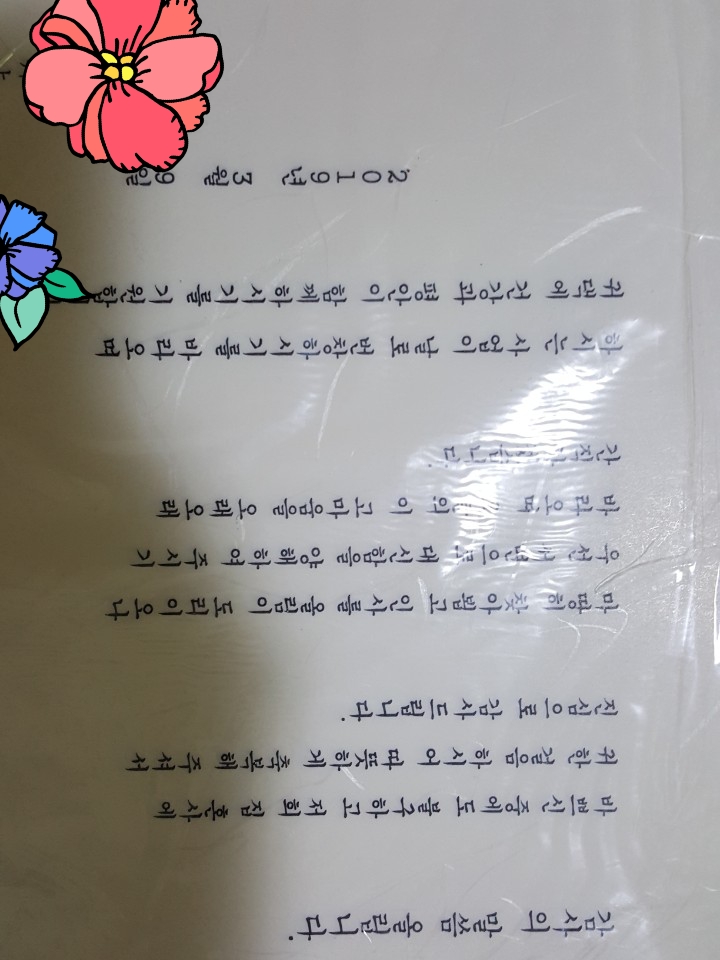 감사의 말씀 올립니다.
바쁘신 중에도 불구하고 저희 집 혼사에
귀한 걸음 하시어 따뜻하게 축복해 주셔서
진심으로 감사드립니다.
마땅히 찾아뵙고 인사를 올림이 도리이오나
우선 서면으로 대신함을 양해하여 주시기
바라오며 이 고마움을 오래오래
간직하겠습니다.
하시는 사업이 날로 번창하시기를 바라오며
귀댁에 건강과 평안이 함께하시기를 기원합
2019년 3월 9일